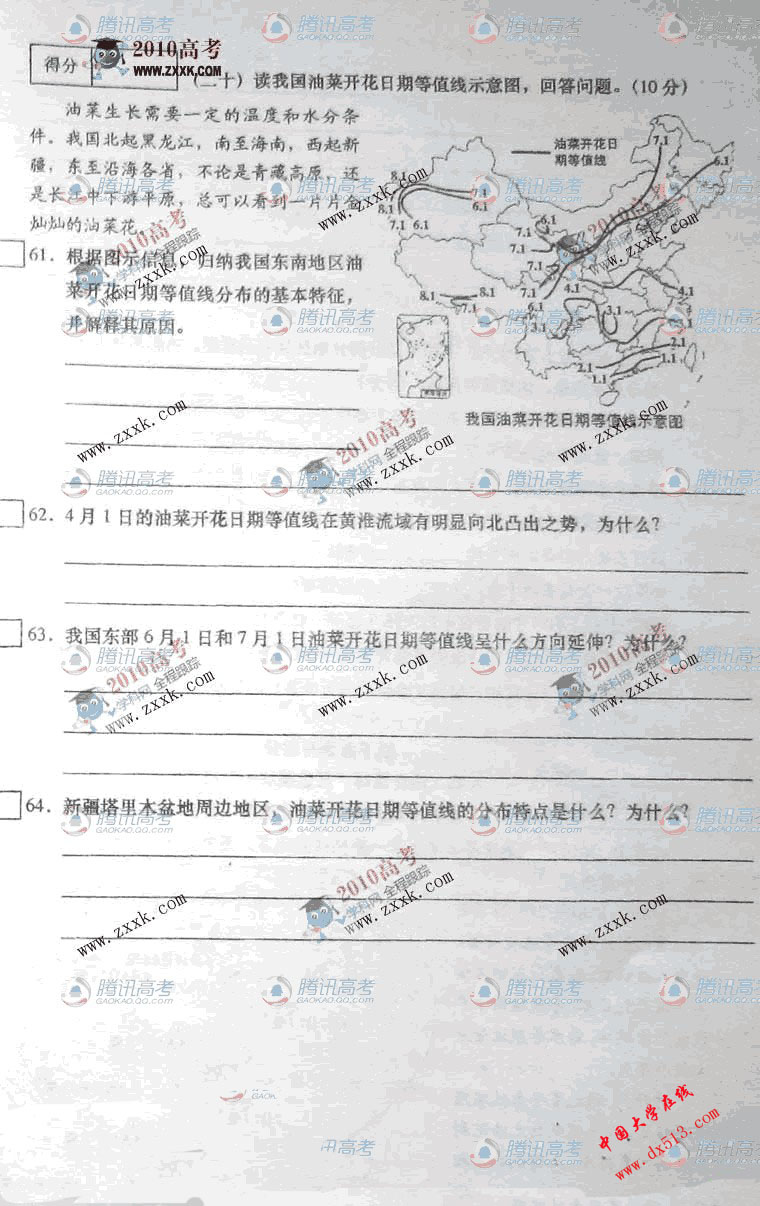 得分
2010高考
WWW.ZXXK.COM
(二十) 读我国油菜开花日期等值线示意图，回答问题。(10 分)
油菜生长需要一定的温度和水分条
件。我国北起黑龙江，南至海南，西起新
疆，东至沿海各省，不论是青藏高原，还
是长江中下游平原，总可以看到一片片金
灿灿的油菜花。
61. 根据图示信息，归纳我国东南地区油
菜开花日期等值线分布的基本特征，
并解释其原因。
油菜开花日
期等值线
7.1
6.1
8.1
7.1
6.1
8.1
7.1 6.1
6.1
7.1
7.1
8.1
8.1
7.1
6.1
4.1
3.1
4.1
3.1
2.1
1.1
2.1
1.1
我国油菜开花日期等值线示意图
62. 4 月 1 日的油菜开花日期等值线在黄淮流域有明显向北凸出之势，为什么？
63. 我国东部 6 月 1 日和 7 月 1 日油菜开花日期等值线呈什么方向延伸？为什么？
64. 新疆塔里木盆地周边地区，油菜开花日期等值线的分布特点是什么？为什么？
腾讯高考
GAOKAO.QQ.COM
2010高考
学科网 全程跟踪
www.zxxk.com
中国大学在线
www.dx513.com